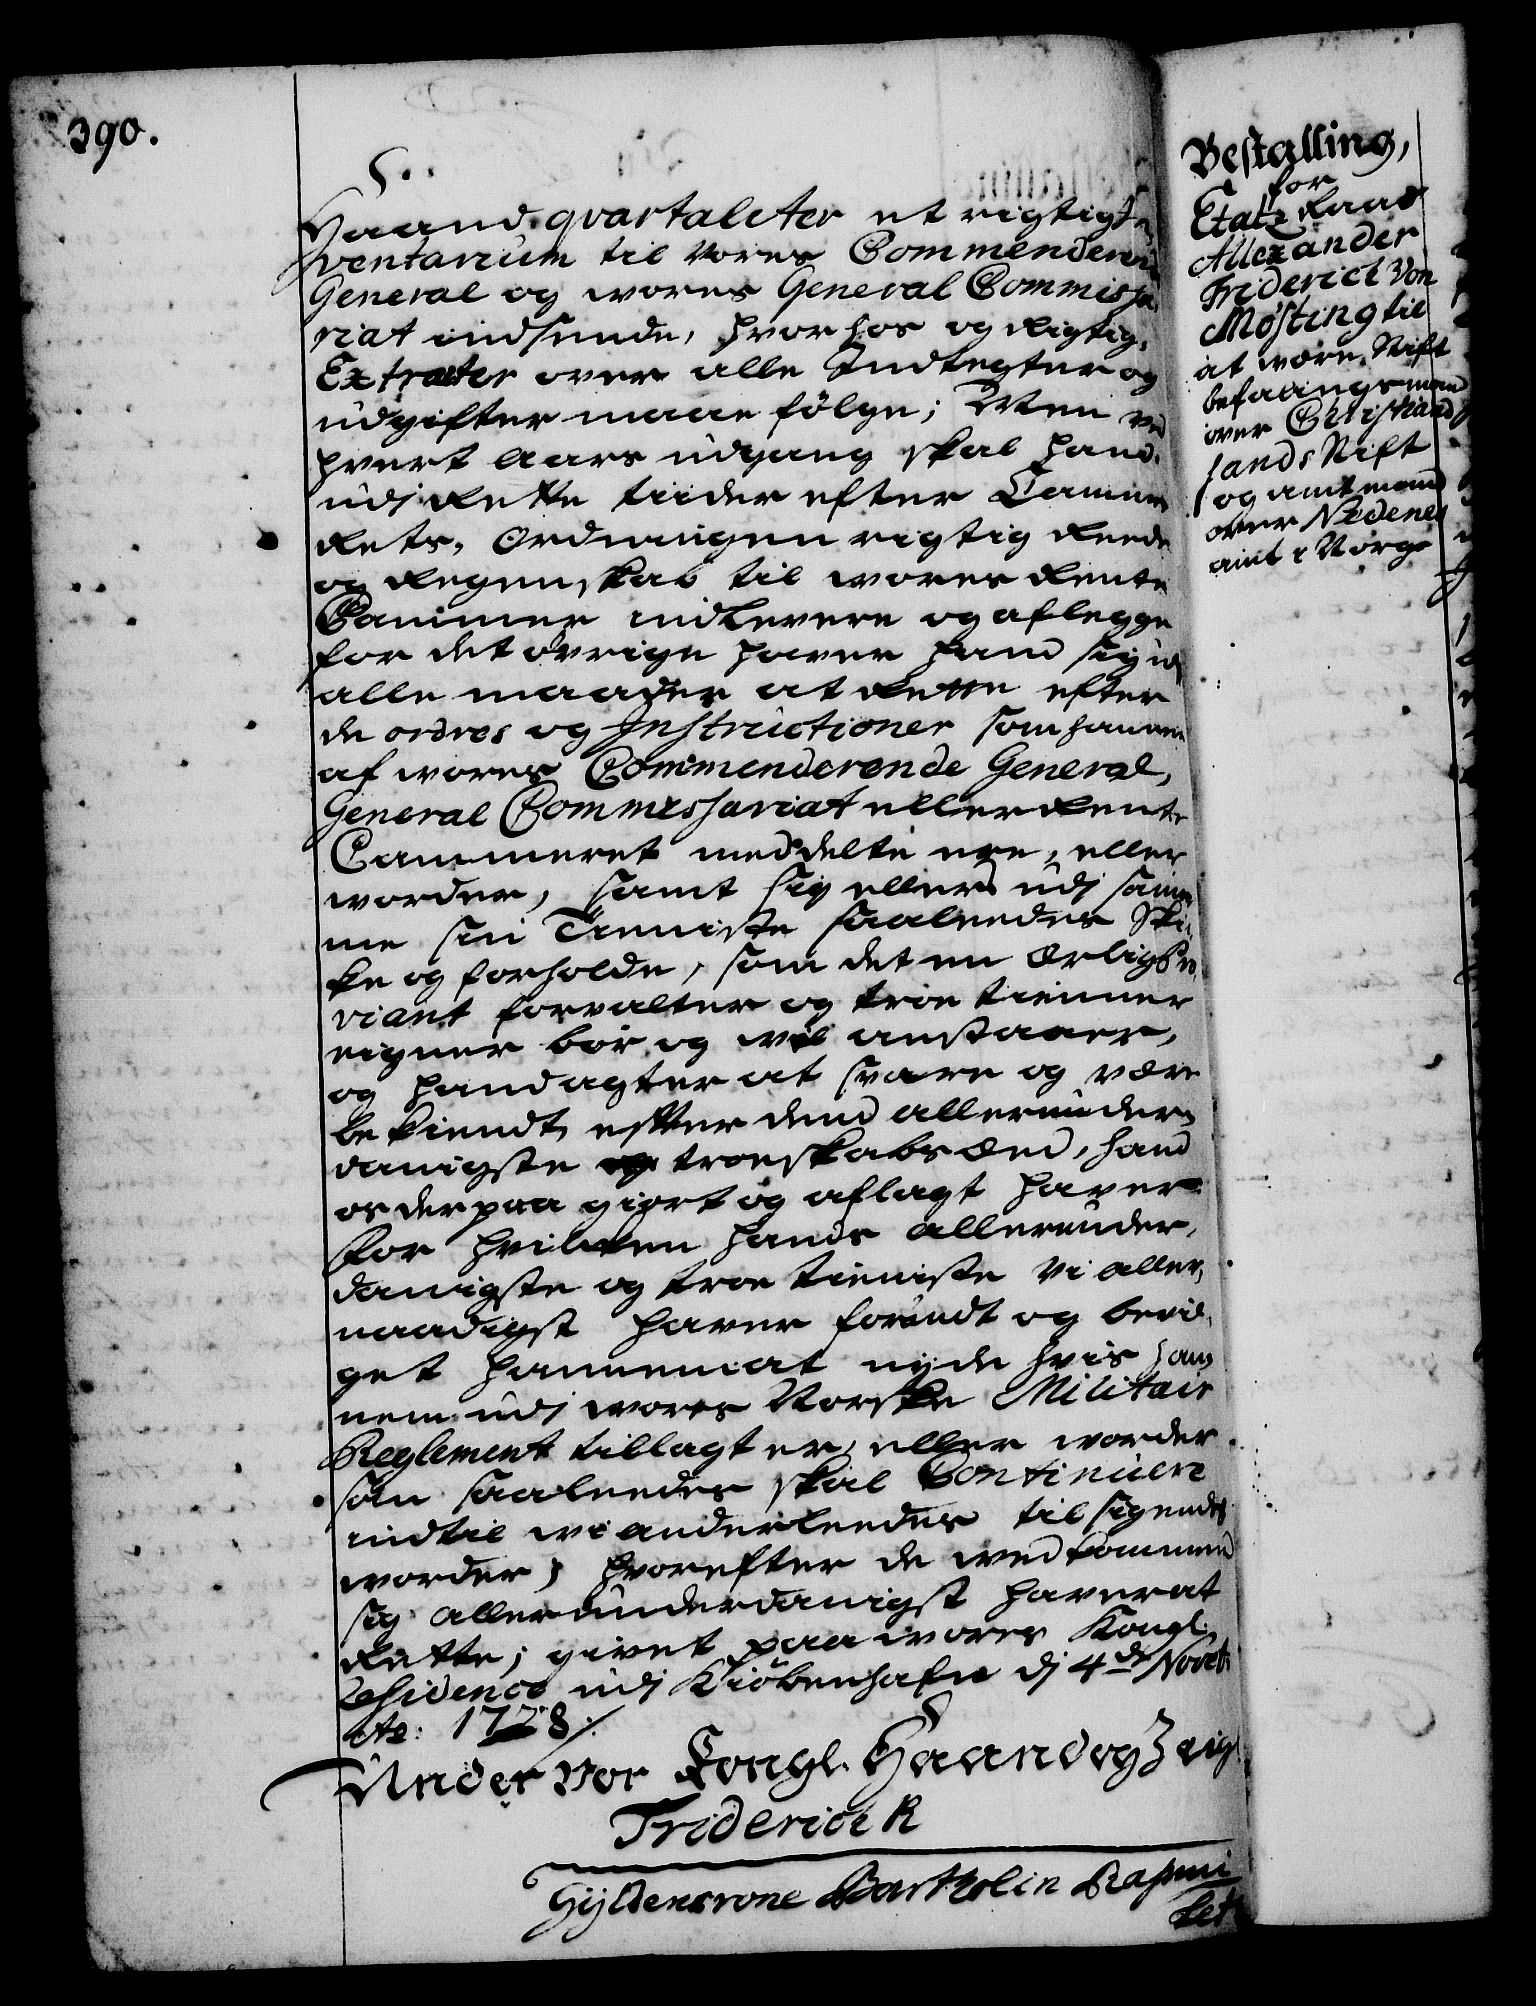 390.
Haand qvartaliter et rigtigt In
ventarium til vores Commenderende
General og wores General Commissa,
riat indsende, hvorhos og Rigtig,
Extracter over alle Indtegter og
udgifter maae fölge; Men ved
hvert Aars udgang skal hand
udj Rette tiider efter Camme
Rets, Ordningen rigtig Reede
og Regenskab til wores Rente
Cammer indlevere og aflegge
for det övrige haver hand sig udj
alle maader at Rette efter
de ordres og Instructioner som hannem
af wores Commenderende General,
General Commissariat eller Rente
Cammeret meddelte ere, eller
worder, samt sig ellers udj sam
me sin Tieniste saaleedes Skic
ke og forholde, som det en Ærlig Pro,
viant forvalter og troe tienner
eigner bör og wel anstaaer,
og hand agter at svare og være
bekiendt, efter dend allerunder,
danigste troeskabs Æed, hand
os derpaa giort og aflagt haver
for hvilcken hands allerunder,
danigste og troe tieniste Vi aller,
naadigst haver forundt og bevil,
get hannem at nyde hvis han,
nem udj wores Norske Militair
Reglement tillagt er, eller worder
som saaleedes skal Continuere
indtil wi anderleedes tilsigendes
worder; hvorefter de wedkommende
sig allerunderdanigst haver at
Rette; givet paa wores Kongl.
Residence udj Kiöbenhafn dj 4de Novbr
Ao: 1728 /.
Under vor Kongl. Haand og Zeigl
Friderich R
Gyldencrone Bartholin Rasmi
Bestalling,
for
Etatz Raad
Allexander
Friderich Von
Møsting til
at wære Stift
befalingsmand
over Christiand
sands Stift
og amtmand
over Nedenes
amt i Norge